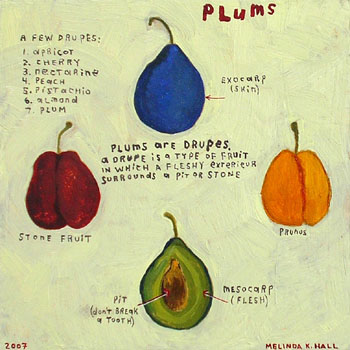 PLUMS
A FEW DRUPES:
1. APRICOT
2. CHERRY
3. NECTARINE
4. PEACH
5. PISTACHIO
6. almond
7. PLUM
EXOCARP
(SKIN)
PLUMS ARE DRUPES.
A DRUPE IS A TYPE OF FRUIT
IN WHICH A FLESHY EXTERIEUR
SURROUNDS A PIT OR STONE
STONE FRUIT
PRUNUS
PIT
(don't BREAK
a TOOTH)
MESOCARP
(FLESH)
2007
MELINDA K. HALL